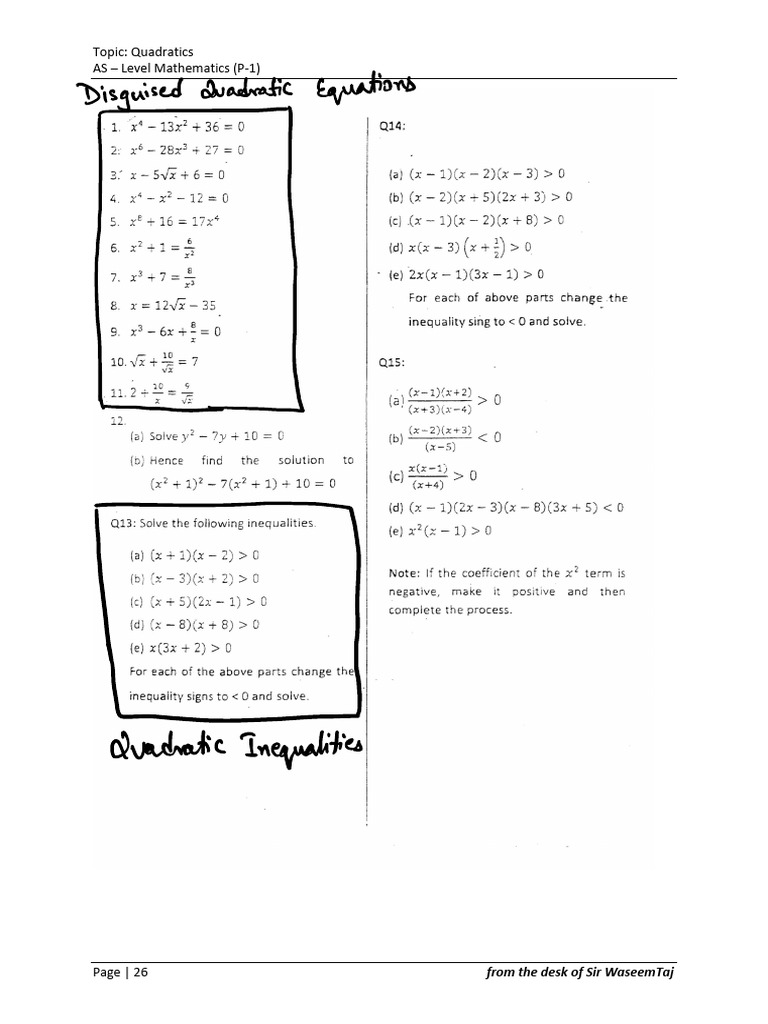 Topic: Quadratics
AS – Level Mathematics (P-1)
Disguised Quadratic Equations
1. x⁴ − 13x² + 36 = 0
2. x⁶ − 28x³ + 27 = 0
3. x − 5√x + 6 = 0
4. x⁴ − x² − 12 = 0
5. x⁸ + 16 = 17x⁴
6. x² + 1 = 6/x²
7. x³ + 7 = 8/x³
8. x = 12√x − 35
9. x³ − 6x + 8/x = 0
10. √x + 10/√x = 7
11. 2 + 10/x = 9/√x
12.
(a) Solve y² − 7y + 10 = 0
(b) Hence find the solution to
(x² + 1)² − 7(x² + 1) + 10 = 0
Q13: Solve the following inequalities.
(a) (x + 1)(x − 2) > 0
(b) (x − 3)(x + 2) > 0
(c) (x + 5)(2x − 1) > 0
(d) (x − 8)(x + 8) > 0
(e) x(3x + 2) > 0
For each of the above parts change the
inequality signs to < 0 and solve.
Quadratic Inequalities
Q14:
(a) (x − 1)(x − 2)(x − 3) > 0
(b) (x − 2)(x + 5)(2x + 3) > 0
(c) (x − 1)(x − 2)(x + 8) > 0
(d) x(x − 3)(x + 1/2) > 0
(e) 2x(x − 1)(3x − 1) > 0
For each of above parts change the
inequality sing to < 0 and solve.
Q15:
(a) (x−1)(x+2)/(x+3)(x−4) > 0
(b) (x−2)(x+3)/(x−5) < 0
(c) x(x−1)/(x+4) > 0
(d) (x − 1)(2x − 3)(x − 8)(3x + 5) < 0
(e) x²(x − 1) > 0
Note: If the coefficient of the x² term is
negative, make it positive and then
complete the process.
Page | 26
from the desk of Sir WaseemTaj